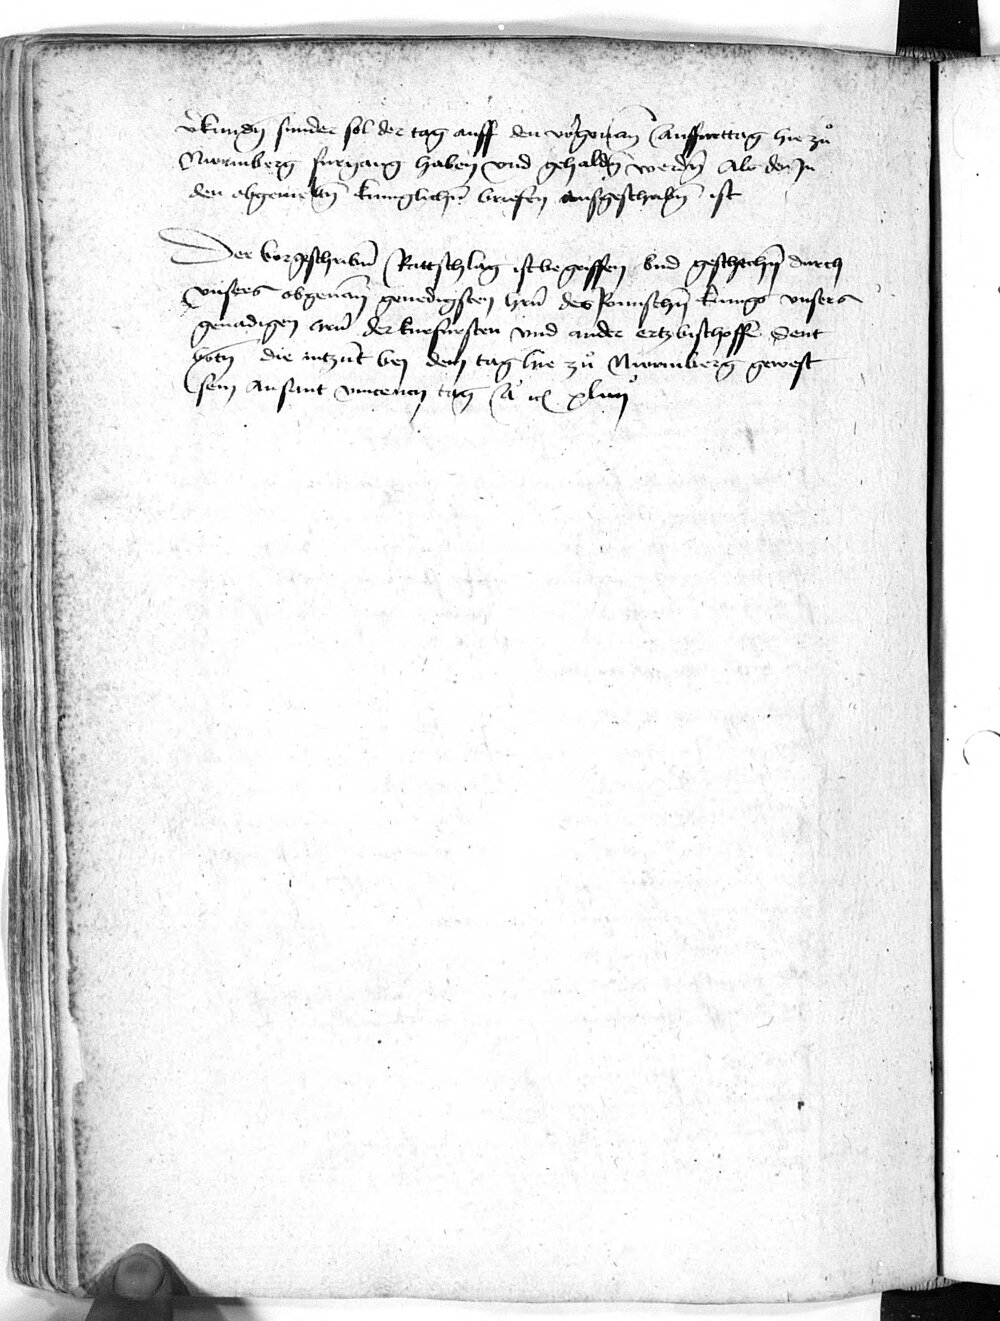 v̈kundn̄ sunder sol der tag auff den vorgenan̄ auffarttag hie zů
Nuremberg furgang haben vnd gehaldn̄ werdn̄ Als der Jn
den obgemeltn̄ kuniglichn̄ briefen ausgeschribn̄ ist
Der vorgeschribn̄ Rattschlag ist begriffen vnd geschehn̄ durch
vnsers obgenan̄ genedigsten hrn̄ des Romischn̄ kunigs vnsers
genadigen hrn̄ der kurfursten vnd ander ertzbischoffe Sent
botn̄ die intzunt bei dem tag hie zů Nuremberg gewest
sein an sant vincencn tag